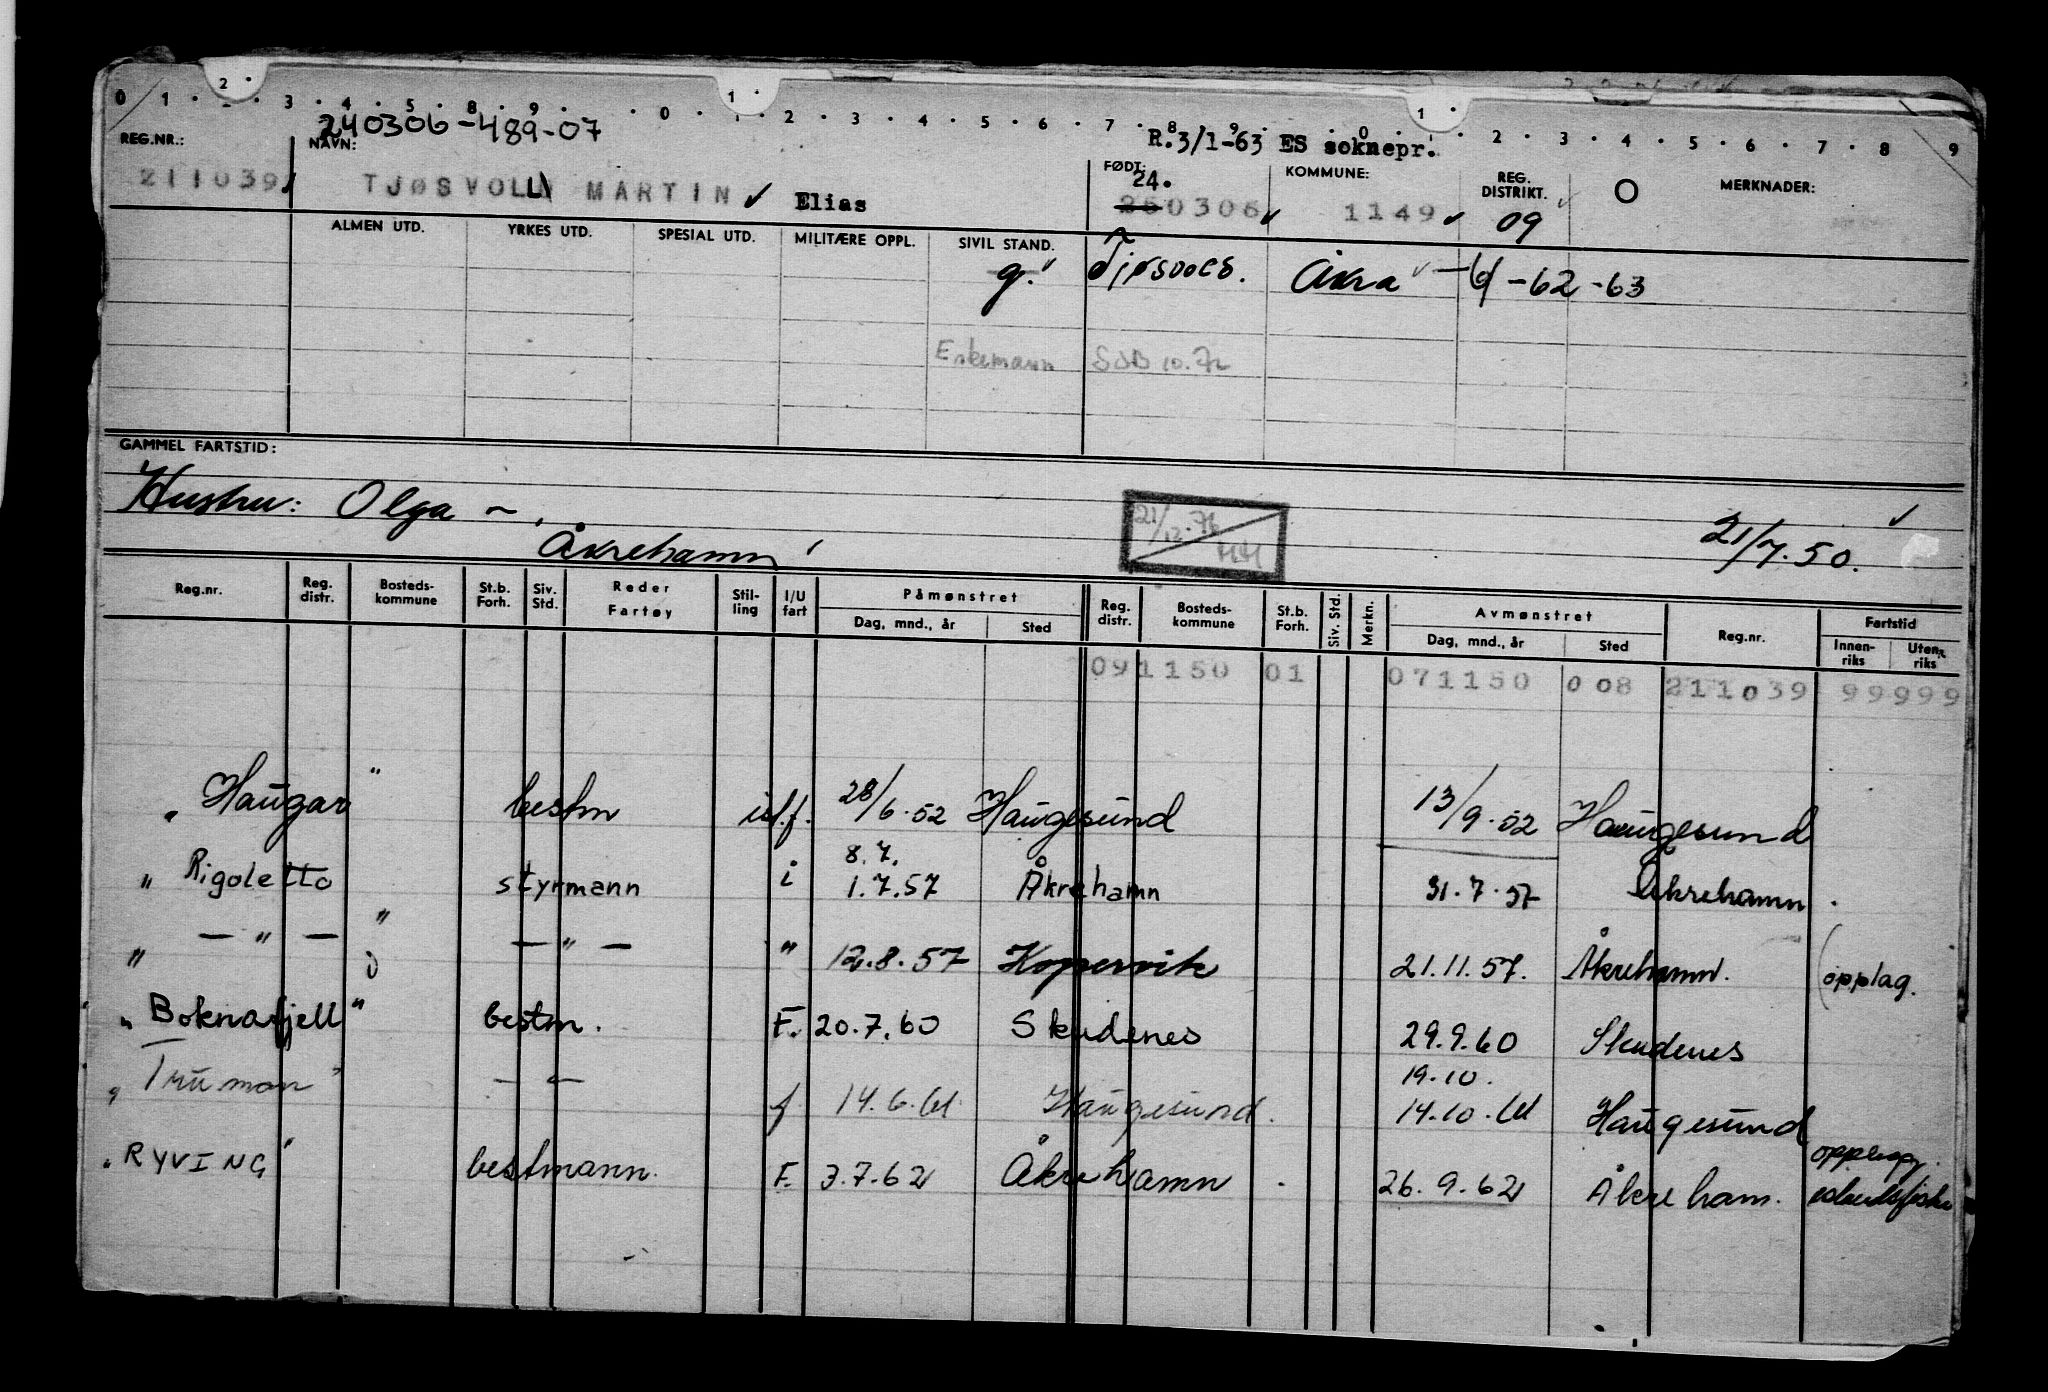 0 1 2 3 4 5 8 9 0 0 1 2 3 4 5 6 7 8 9 0 1 2 3 4 5 6 7 8 9
240306-489-07
R.3/1-63 ES soknepr.
REG.NR.: NAVN: FØDT: KOMMUNE: REG. DISTRIKT. O MERKNADER:
211039 TJØSVOLL MARTIN Elias 24. 250306 1149 09
ALMEN UTD. YRKES UTD. SPESIAL UTD. MILITÆRE OPPL. SIVIL STAND.
g. Åkra -61 -62 -63
Enkemann
GAMMEL FARTSTID:
Hustru: Olga ~.
Åkrehamn
21/12.76 HH
21/7.50.
Reg.nr. Reg. distr. Bosteds-kommune St.b. Forh. Siv. Std. Reder Fartøy Stil-ling I/U fart Påmønstret Reg. distr. Bosteds-kommune St.b. Forh. Siv. Std. Merkn. Avmønstret Reg.nr. Fartstid
Dag, mnd., år Sted Dag, mnd., år Sted Innen-riks Uten-riks
091150 01 071150 008 211039 99999
" Haugar " bestm isl.f. 28/6.52 Haugesund 13/9.52 Haugesund
8.7.
" Rigoletto styrmann i 1.7.57 Åkrehamn 31.7.57 Åkrehamn.
" — " — " — " — " 12.8.57 Kopervik 21.11.57. Åkrehamn. (opplag.
" Boknafjell " bestm. F. 20.7.60 Skudenes 29.9.60 Skudenes
19.10.
" Truman " — " — f. 14.6.61. Haugesund. 14.10.61 Haugesund
" RYVING " bestmann. F. 3.7.62 Åkrehamn. 26.9.62 Åkreham.